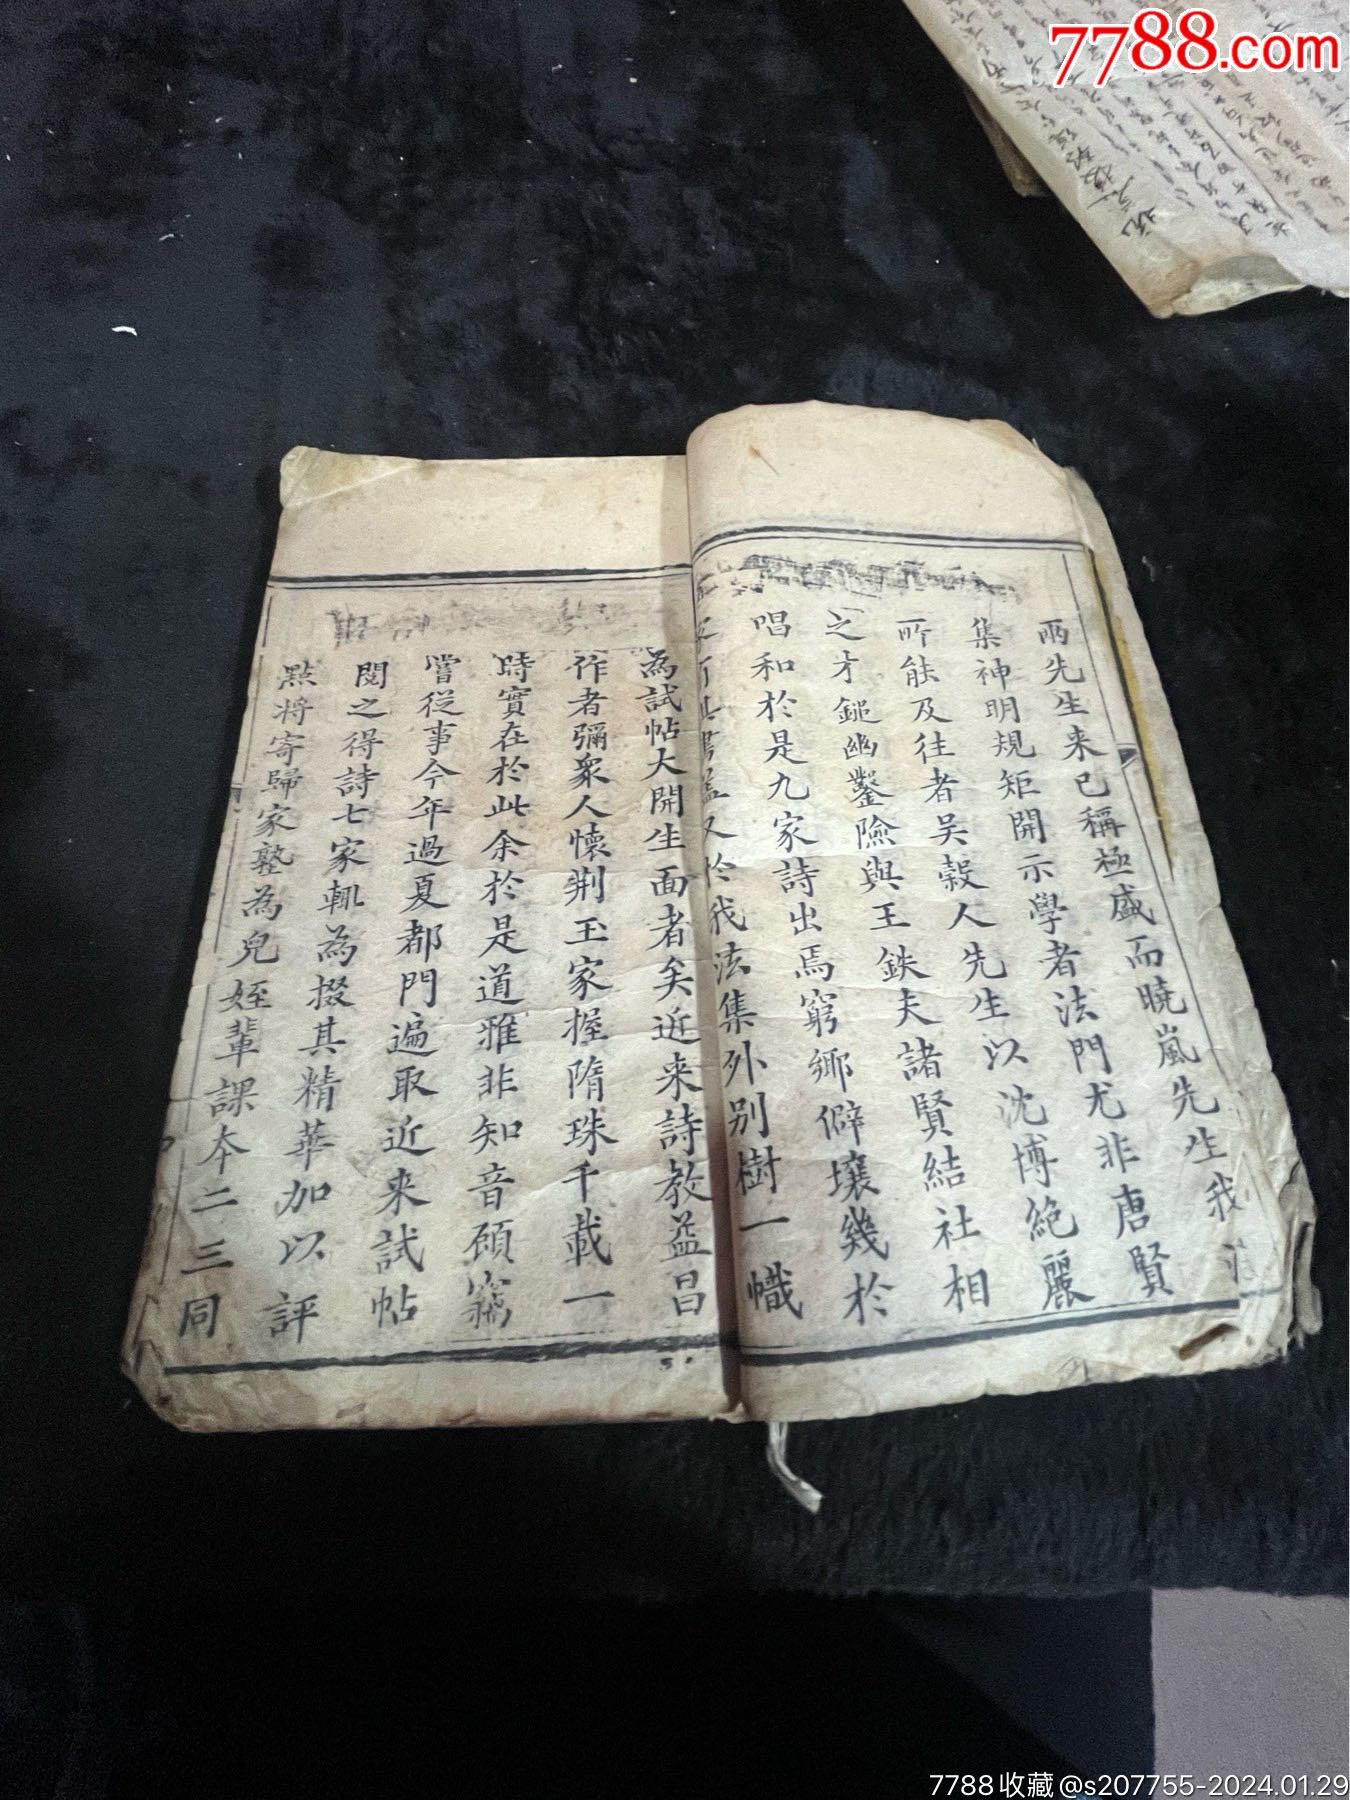 7788.com
兩先生来已稱極盛而曉嵐先生我法
集神明規矩開示學者法門尤非唐賢
所能及往者吳穀人先生以沈博絶麗
之才鎚幽鑿險與王鉄夫諸賢結社相
唱和於是九家詩出焉窮鄉僻壤幾於
又於我法集外别樹一幟
為試帖大開生面者矣近来詩教益昌
作者彌衆人懷荆玉家握隋珠千載一
時實在於此余於是道雅非知音顧竊
嘗從事今年過夏都門遍取近来試帖
閲之得詩七家輒為掇其精華加以評
點将寄歸家塾為兒姪輩課本二三同
7788收藏@s207755-2024.01.29